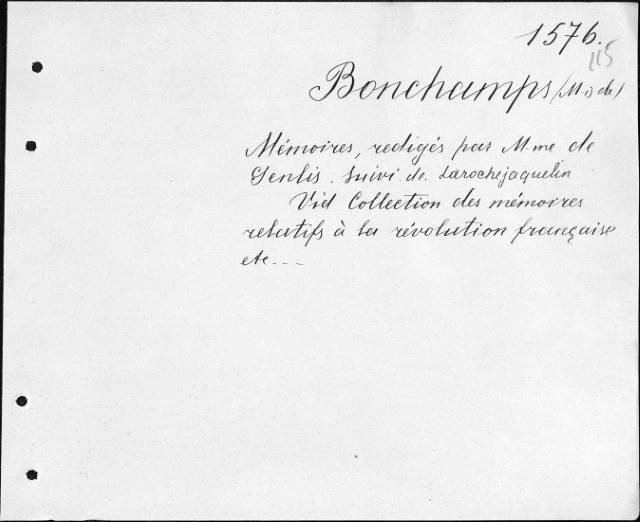 1576.
115
Bonchamps (M is de)
Mémoires, redigés par Mme de
Genlis. Suivi de Larochejaquelin
Vid Collection des mémoires
relatifs à la révolution française
etc---